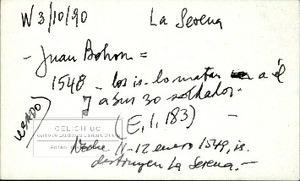 W 3/10/90 La Serena
- Juan Bohon =
1548 - los is. lo matan a él
y a sus 30 soldados.-
(E, 1, 183) -
USADO
CELICH UC
Noche 11-12 enero 1549, is.
destruyen La Serena.-